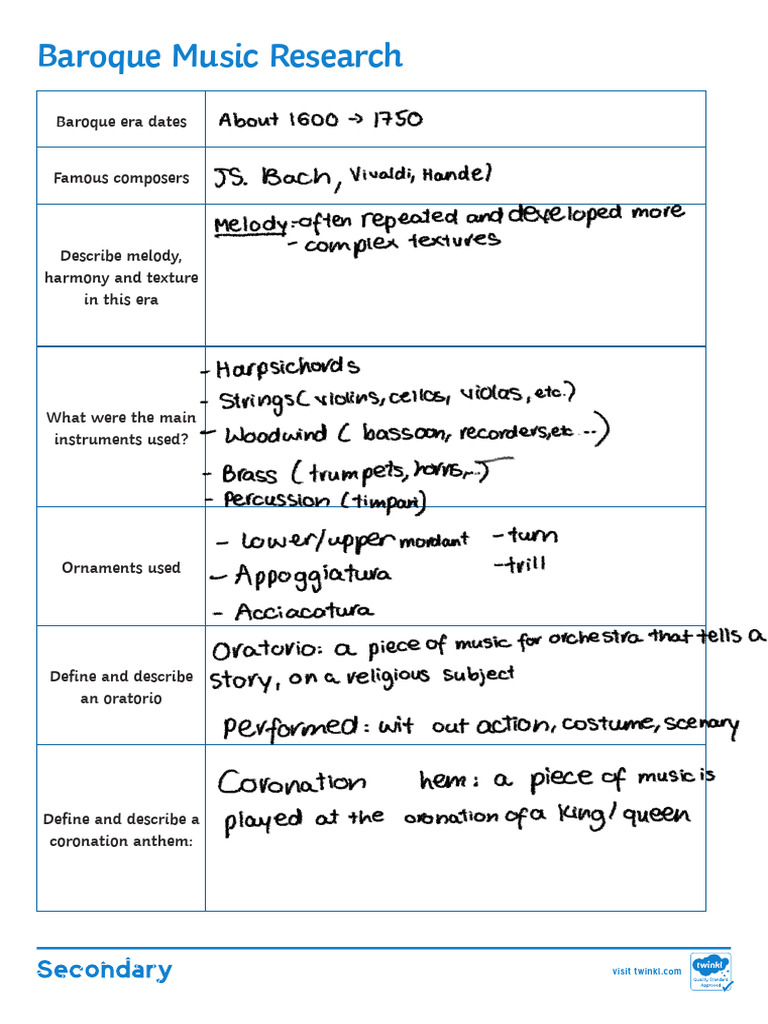 Baroque Music Research
Baroque era dates
About 1600 → 1750
Famous composers
JS. Bach, Vivaldi, Handel
Describe melody,
harmony and texture
in this era
Melody:-often repeated and developed more
- complex textures
What were the main
instruments used?
- Harpsichords
- Strings (violins, cellos, violas, etc.)
- Woodwind ( bassoon, recorders, etc ...)
- Brass (trumpets, horns,...)
- Percussion (timpani)
Ornaments used
- Lower/upper mordant - turn
- trill
- Appoggiatura
- Acciacatura
Define and describe
an oratorio
Oratorio: a piece of music for orchestra that tells a
story, on a religious subject
performed: wit out action, costume, scenary
Define and describe a
coronation anthem:
Coronation hem: a piece of music is
played at the oronation of a king/queen
Secondary
visit twinkl.com
twinkl
Quality Standard
Approved